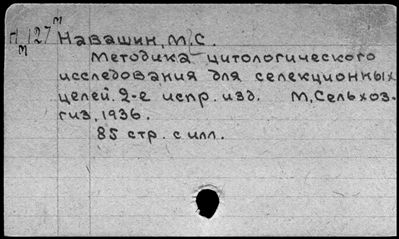 Н 127 м Навашин, М.С.
м
Методика цитологического
исследования для селекционных
целей. 2-е испр. изд. М, Сельхоз-
гиз, 1936.
85 стр. с илл.